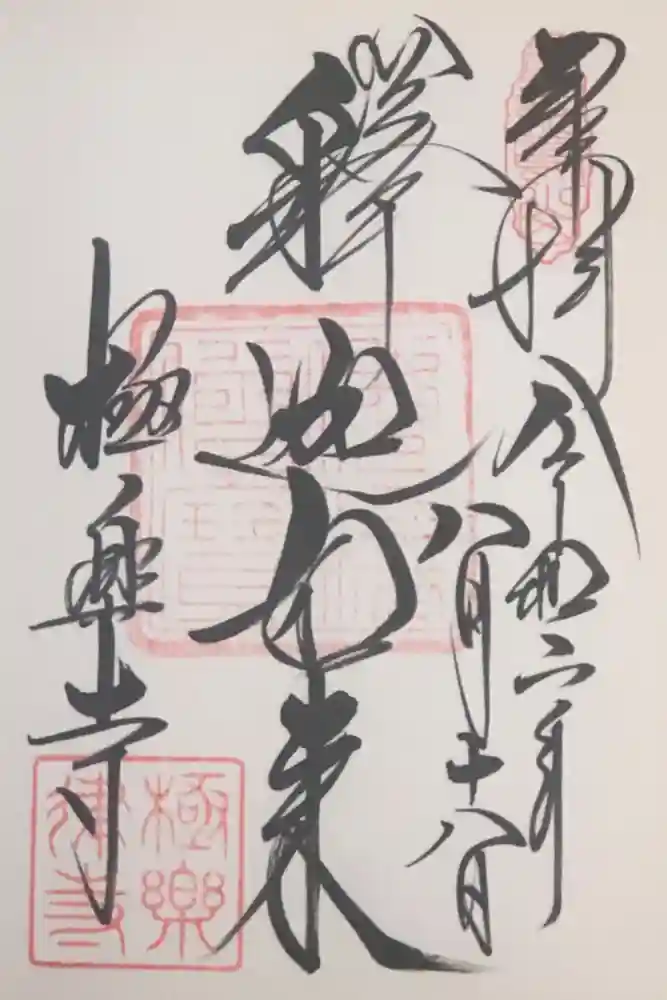 奉拝
令和六年
八月十八日
釋迦如来
極楽寺
極樂
律寺